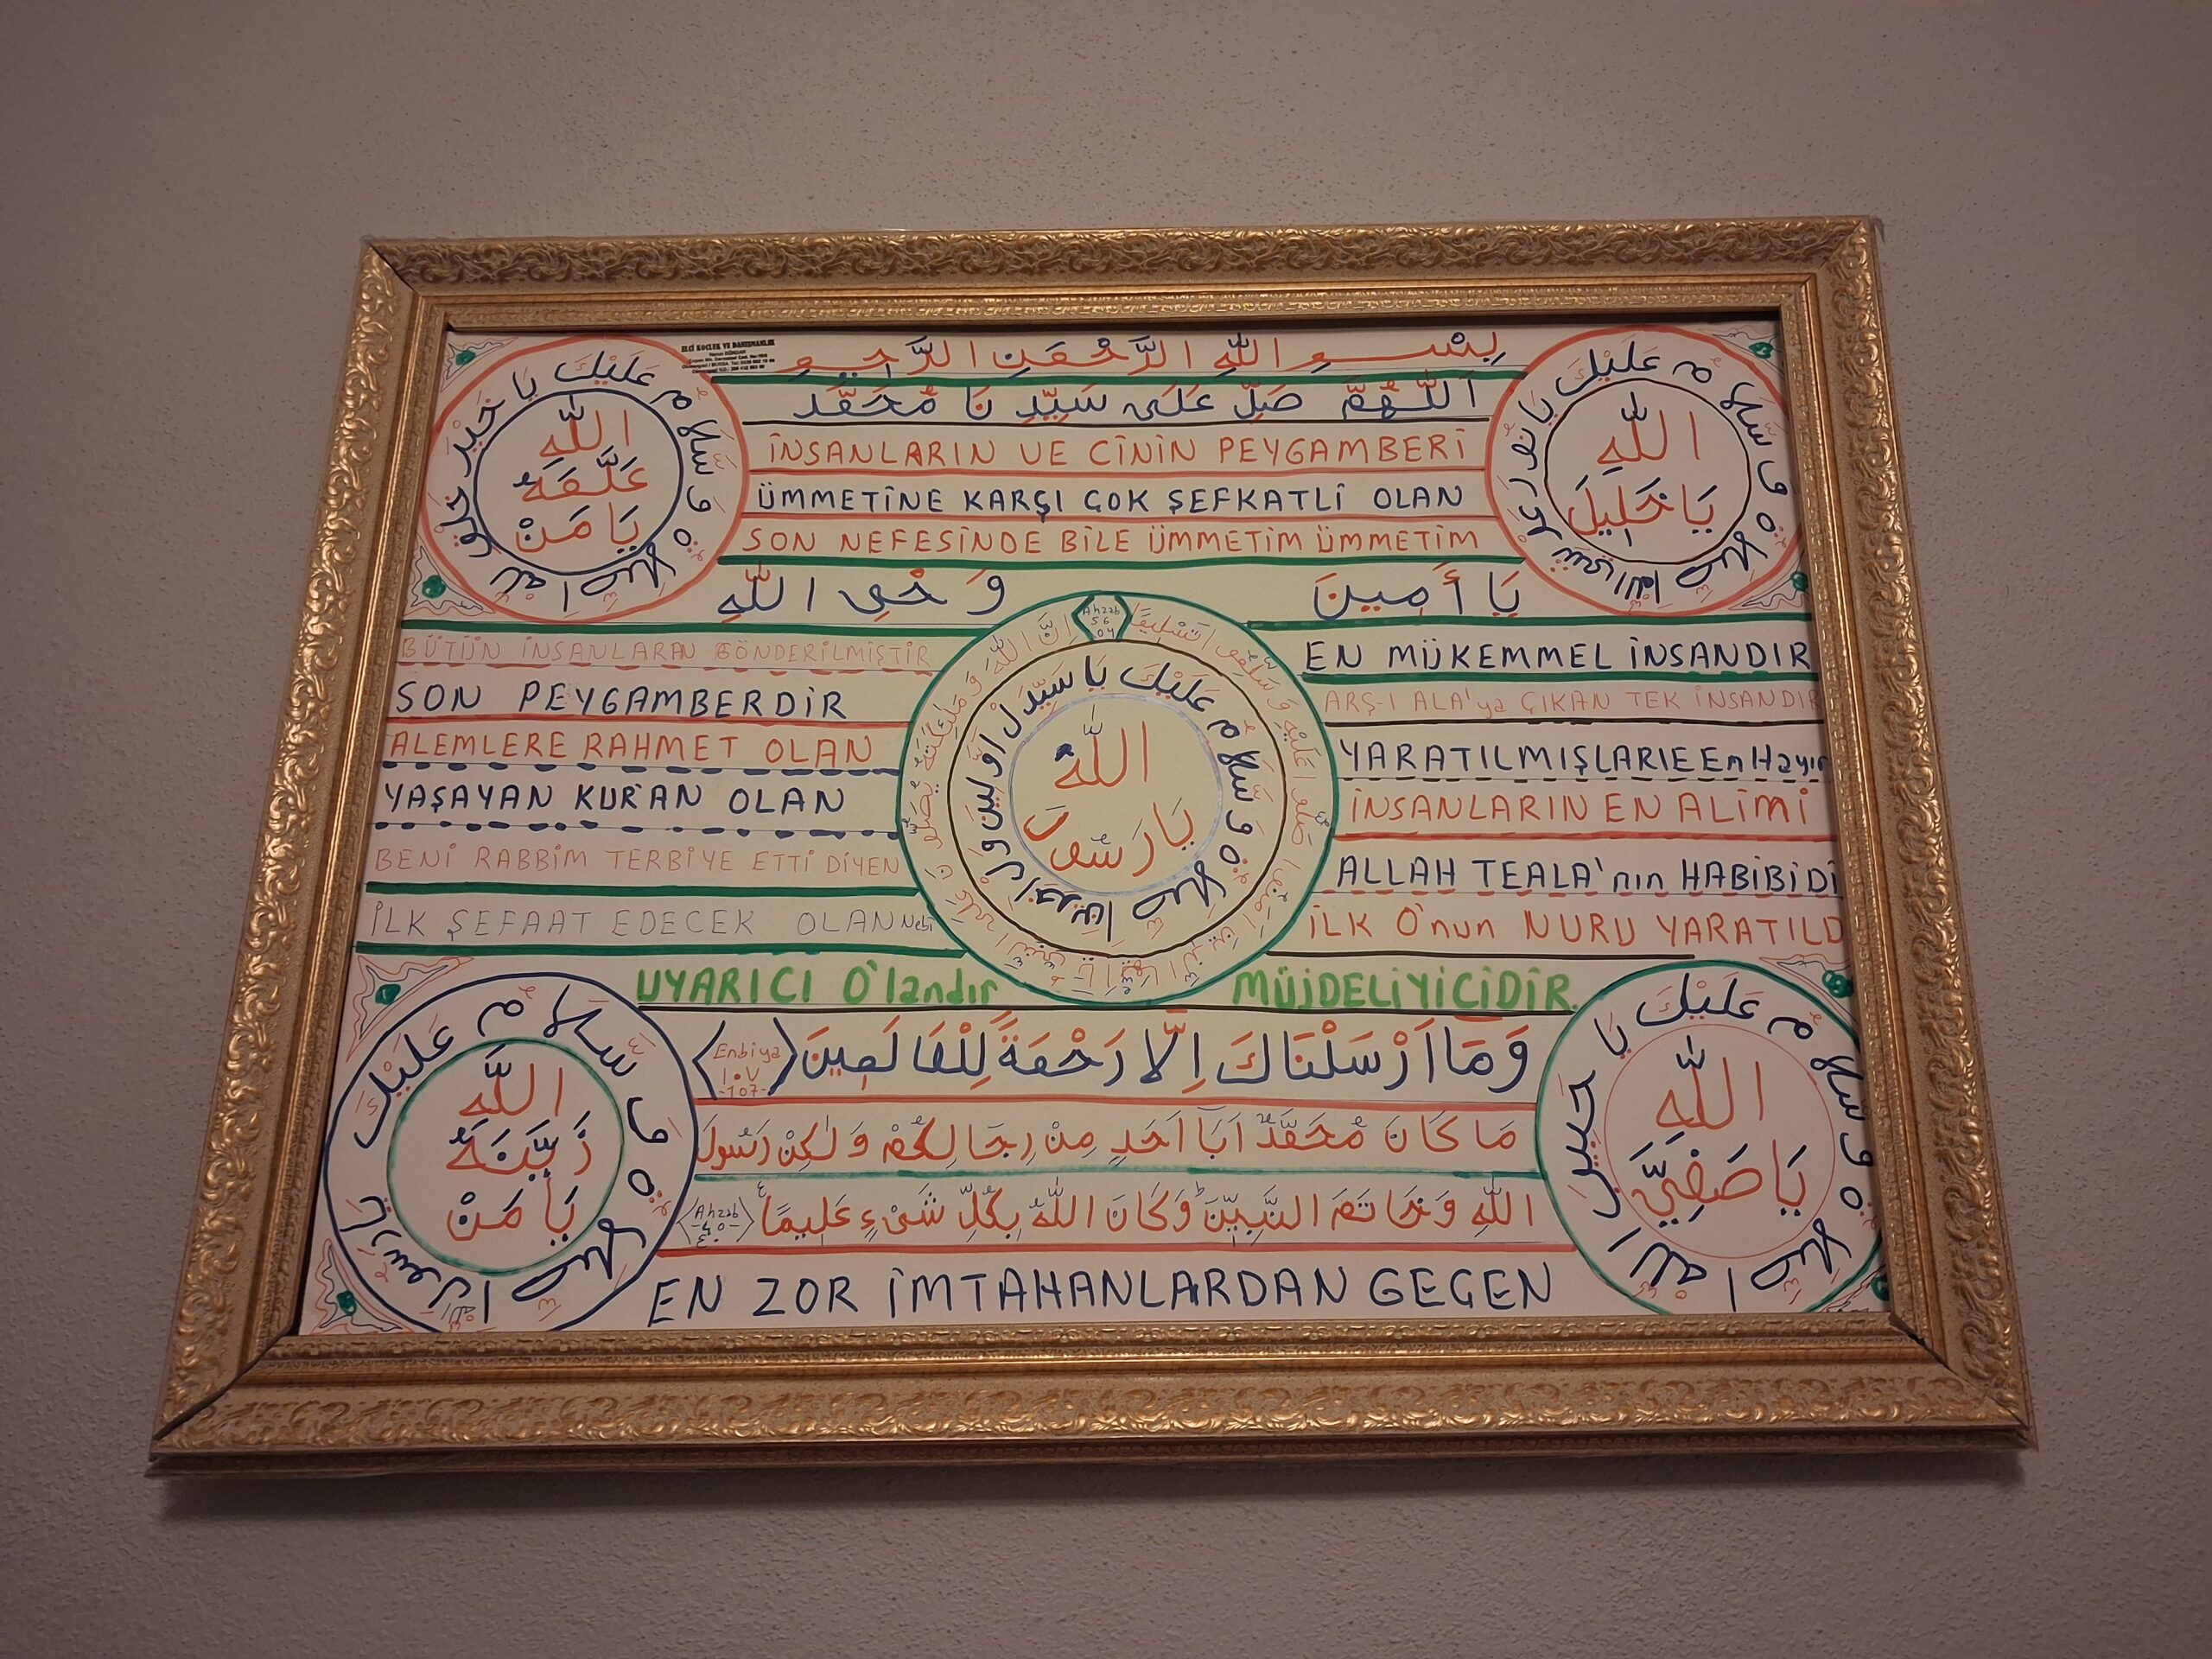 بِسْــــمِ اللّٰهِ الرَّحْمَنِ الرَّحِيمِ
اَللّٰهُمَّ صَلِّ عَلَى سَيِّدِ نَا مُحَمَّد
İNSANLARIN VE CİNİN PEYGAMBERİ
ÜMMETİNE KARŞI ÇOK ŞEFKATLİ OLAN
SON NEFESİNDE BİLE ÜMMETİM ÜMMETİM
يَا أَمِينَ وَحْىِ اللّٰهِ
اللّٰهِ
عَلَّمَهُ
يَا مَنْ
اَلصَّلَاةُ وَسَّلَامُ عَلَيْكَ يَا خَيْرَ خَلْقِ اللّٰه
اللّٰهِ
يَا خَلِيلَ
اَلصَّلَاةُ وَسَّلَامُ عَلَيْكَ يَا نُورَ عَرْشِ اللّٰه
BÜTÜN İNSANLARA GÖNDERİLMİŞTİR
SON PEYGAMBERDİR
ALEMLERE RAHMET OLAN
YAŞAYAN KUR'AN OLAN
BENİ RABBİM TERBİYE ETTİ DİYEN
İLK ŞEFAAT EDECEK OLAN Nebi
Ahzab
56
اِنَّ اللّٰهَ وَمَلٰئِكَتَهُ يُصَلُّونَ عَلَى النَّبِيِّ يَا اَيُّهَا الَّذِينَ اٰمَنُوا صَلُّوا عَلَيْهِ وَسَلِّمُوا تَسْلِيمًا
اَلصَّلَاةُ وَسَّلَامُ عَلَيْكَ يَا سَيِّدَ لْ اَوَّلِينَ وَلْ اٰخِرِينَ
اللّٰهُ
يَا رَسُولَ
EN MÜKEMMEL İNSANDIR
ARŞ-I ALA'ya ÇIKAN TEK İNSANDIR
YARATILMIŞLARIE En Hayır
İNSANLARIN EN ALİMİ
ALLAH TEALA'nın HABİBİDİ
İLK O'nun NURU YARATILD
UYARICI O'landır MÜJDELİYİCİDİR.
وَمَا اَرْسَلْنَاكَ اِلَّا رَحْمَةً لِلْعَالَمِينَ
Enbiya
١٠٧
-107-
مَا كَانَ مُحَمَّدٌ اَبَا اَحَدٍ مِنْ رِجَالِكُمْ وَلٰكِنْ رَسُولَ
اللّٰهِ وَخَاتَمَ النَّبِيِّنَ وَكَانَ اللّٰهُ بِكُلِّ شَىْءٍ عَلِيمًا
Ahzab
-40-
٤٠
EN ZOR İMTAHANLARDAN GEÇEN
اللّٰهِ
رَبَّيَهُ
يَا مَنْ
اَلصَّلَاةُ وَسَّلَامُ عَلَيْكَ يَا رَسُولَ اللّٰه
اللّٰهِ
يَا صَفِيَّ
اَلصَّلَاةُ وَسَّلَامُ عَلَيْكَ يَا حَبِيبَ اللّٰه